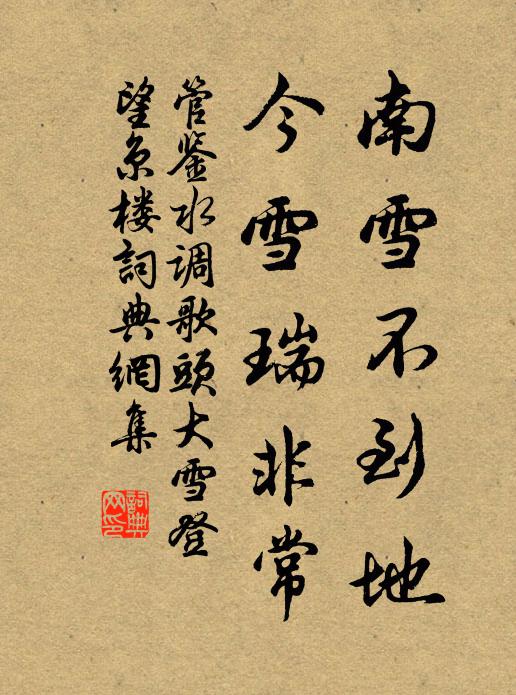 南雪不到地
今雪瑞非常
管鉴水调歌头大雪登
望京楼詞典網集
詞典网印